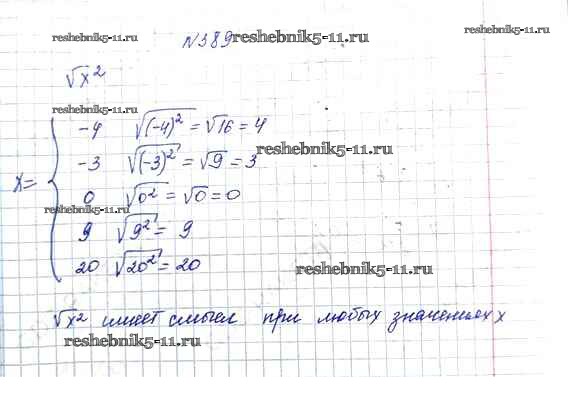 reshebnik5-11.ru
№389 reshebnik5-11.ru
reshebnik5-11.ru
√x²
reshebnik5-11.ru
-4 √(-4)² = √16 = 4
reshebnik5-11.ru
-3 √(-3)² = √9 = 3
x =
0 √0² = √0 = 0
reshebnik5-11.ru
9 √9² = 9
20 √20² = 20
reshebnik5-11.ru
√x² имеет смысл при любых значениях x
reshebnik5-11.ru